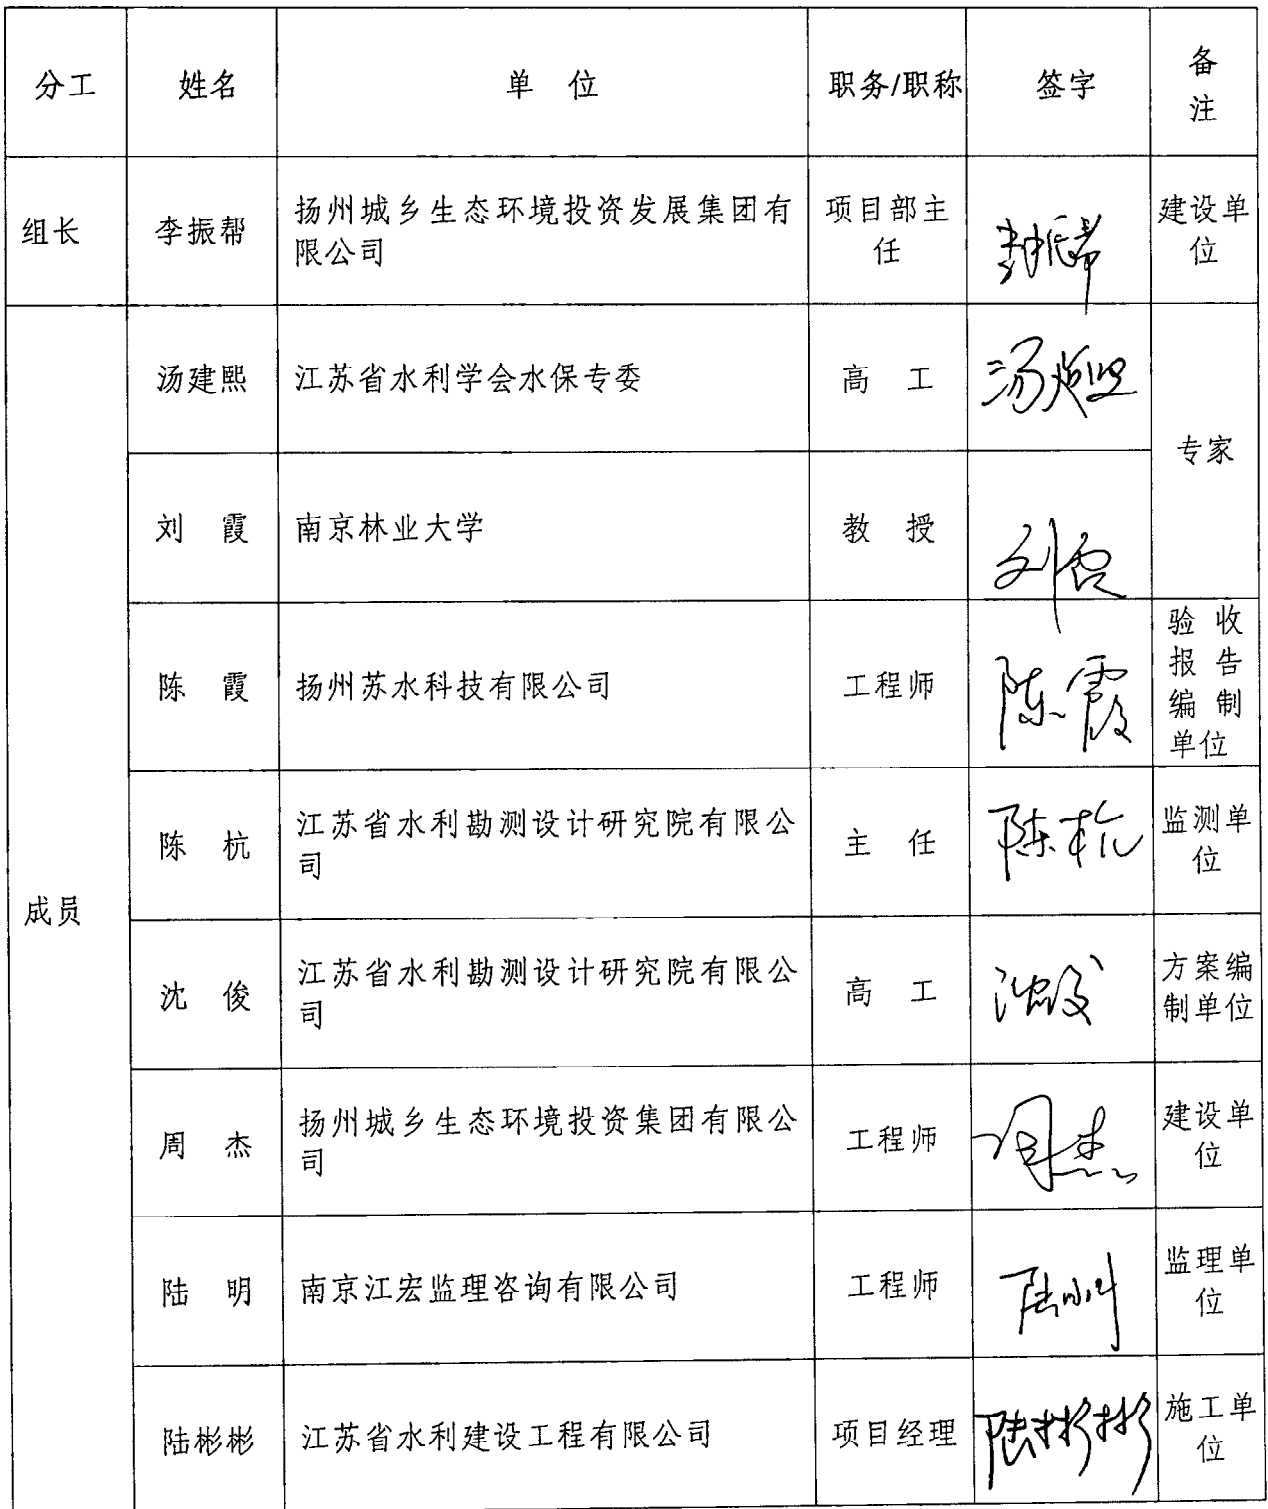 分工 姓名 单 位 职务/职称 签字 备
注
组长 李振帮 扬州城乡生态环境投资发展集团有
限公司 项目部主
任 建设单
位
成员
汤建熙 江苏省水利学会水保专委 高 工 汤建熙
专家
刘 霞 南京林业大学 教 授 刘霞
陈 霞 扬州苏水科技有限公司 工程师 陈霞 验 收
报 告
编 制
单位
陈 杭 江苏省水利勘测设计研究院有限公
司 主 任 陈杭 监测单
位
沈 俊 江苏省水利勘测设计研究院有限公
司 高 工 沈俊 方案编
制单位
周 杰 扬州城乡生态环境投资集团有限公
司 工程师 周杰 建设单
位
陆 明 南京江宏监理咨询有限公司 工程师 监理单
位
陆彬彬 江苏省水利建设工程有限公司 项目经理 陆彬彬 施工单
位